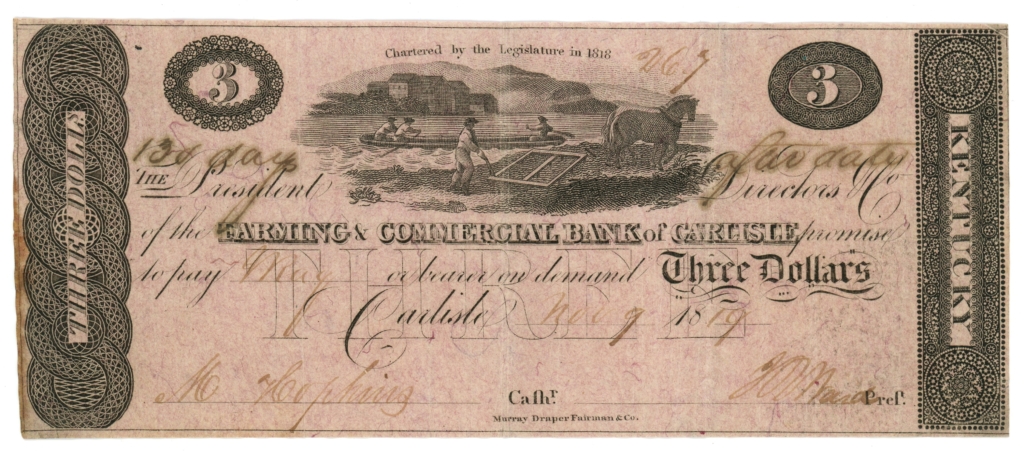 Chartered by the Legislature in 1818
267
3
3
THREE DOLLS
KENTUCKY
130 days after date
THE President Directors & Co
of the FARMING & COMMERCIAL BANK of CARLISLE promise
to pay or bearer on demand Three Dollars
THREE
Carlisle Nov 9 1819
M Hopkins Cashr. Prest.
Murray Draper Fairman & Co.